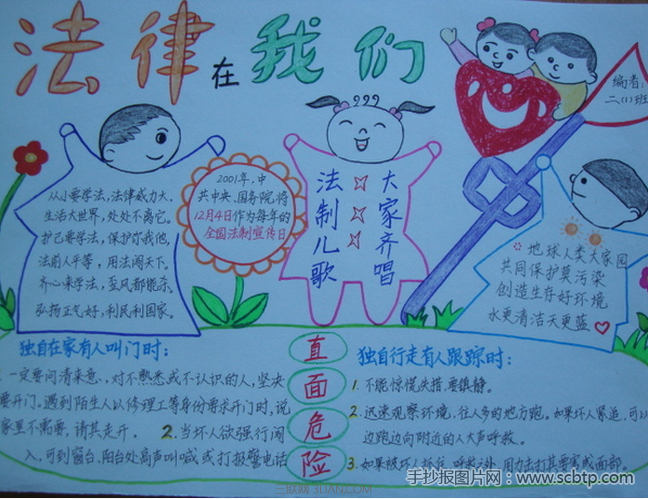 法律在我们
编者:
二(1)班
从小要学法,法律威力大.
生活大世界,处处不离它.
护己要学法,保护你我他,
法前人平等,用法闯天下.
齐心来学法,歪风都能杀.
弘扬正气好,利民利国家.
2001年,中
共中央、国务院,将
12月4日作为每年的
全国法制宣传日
法制儿歌
大家齐唱
地球人类大家园
共同保护莫污染
创造生存好环境
水更清洁天更蓝
独自在家有人叫门时:
一定要问清来意,对不熟悉或不认识的人,坚决
要开门。遇到陌生人以修理工等身份要求开门时,说
家里不需要,请其走开. 2.当坏人欲强行闯
入,可到窗台、阳台处高声叫喊或打报警电话
直面危险
独自行走有人跟踪时:
1.不能惊慌失措.要镇静.
2.迅速观察环境,往人多的地方跑。如果坏人紧追,可以
边跑边向附近的人大声呼救。
3.如果被坏人抓住,呼救之外,用力击打其要害或面部.
手抄报图片网 - www.scbtp.com
三联网 3LIAN.COM